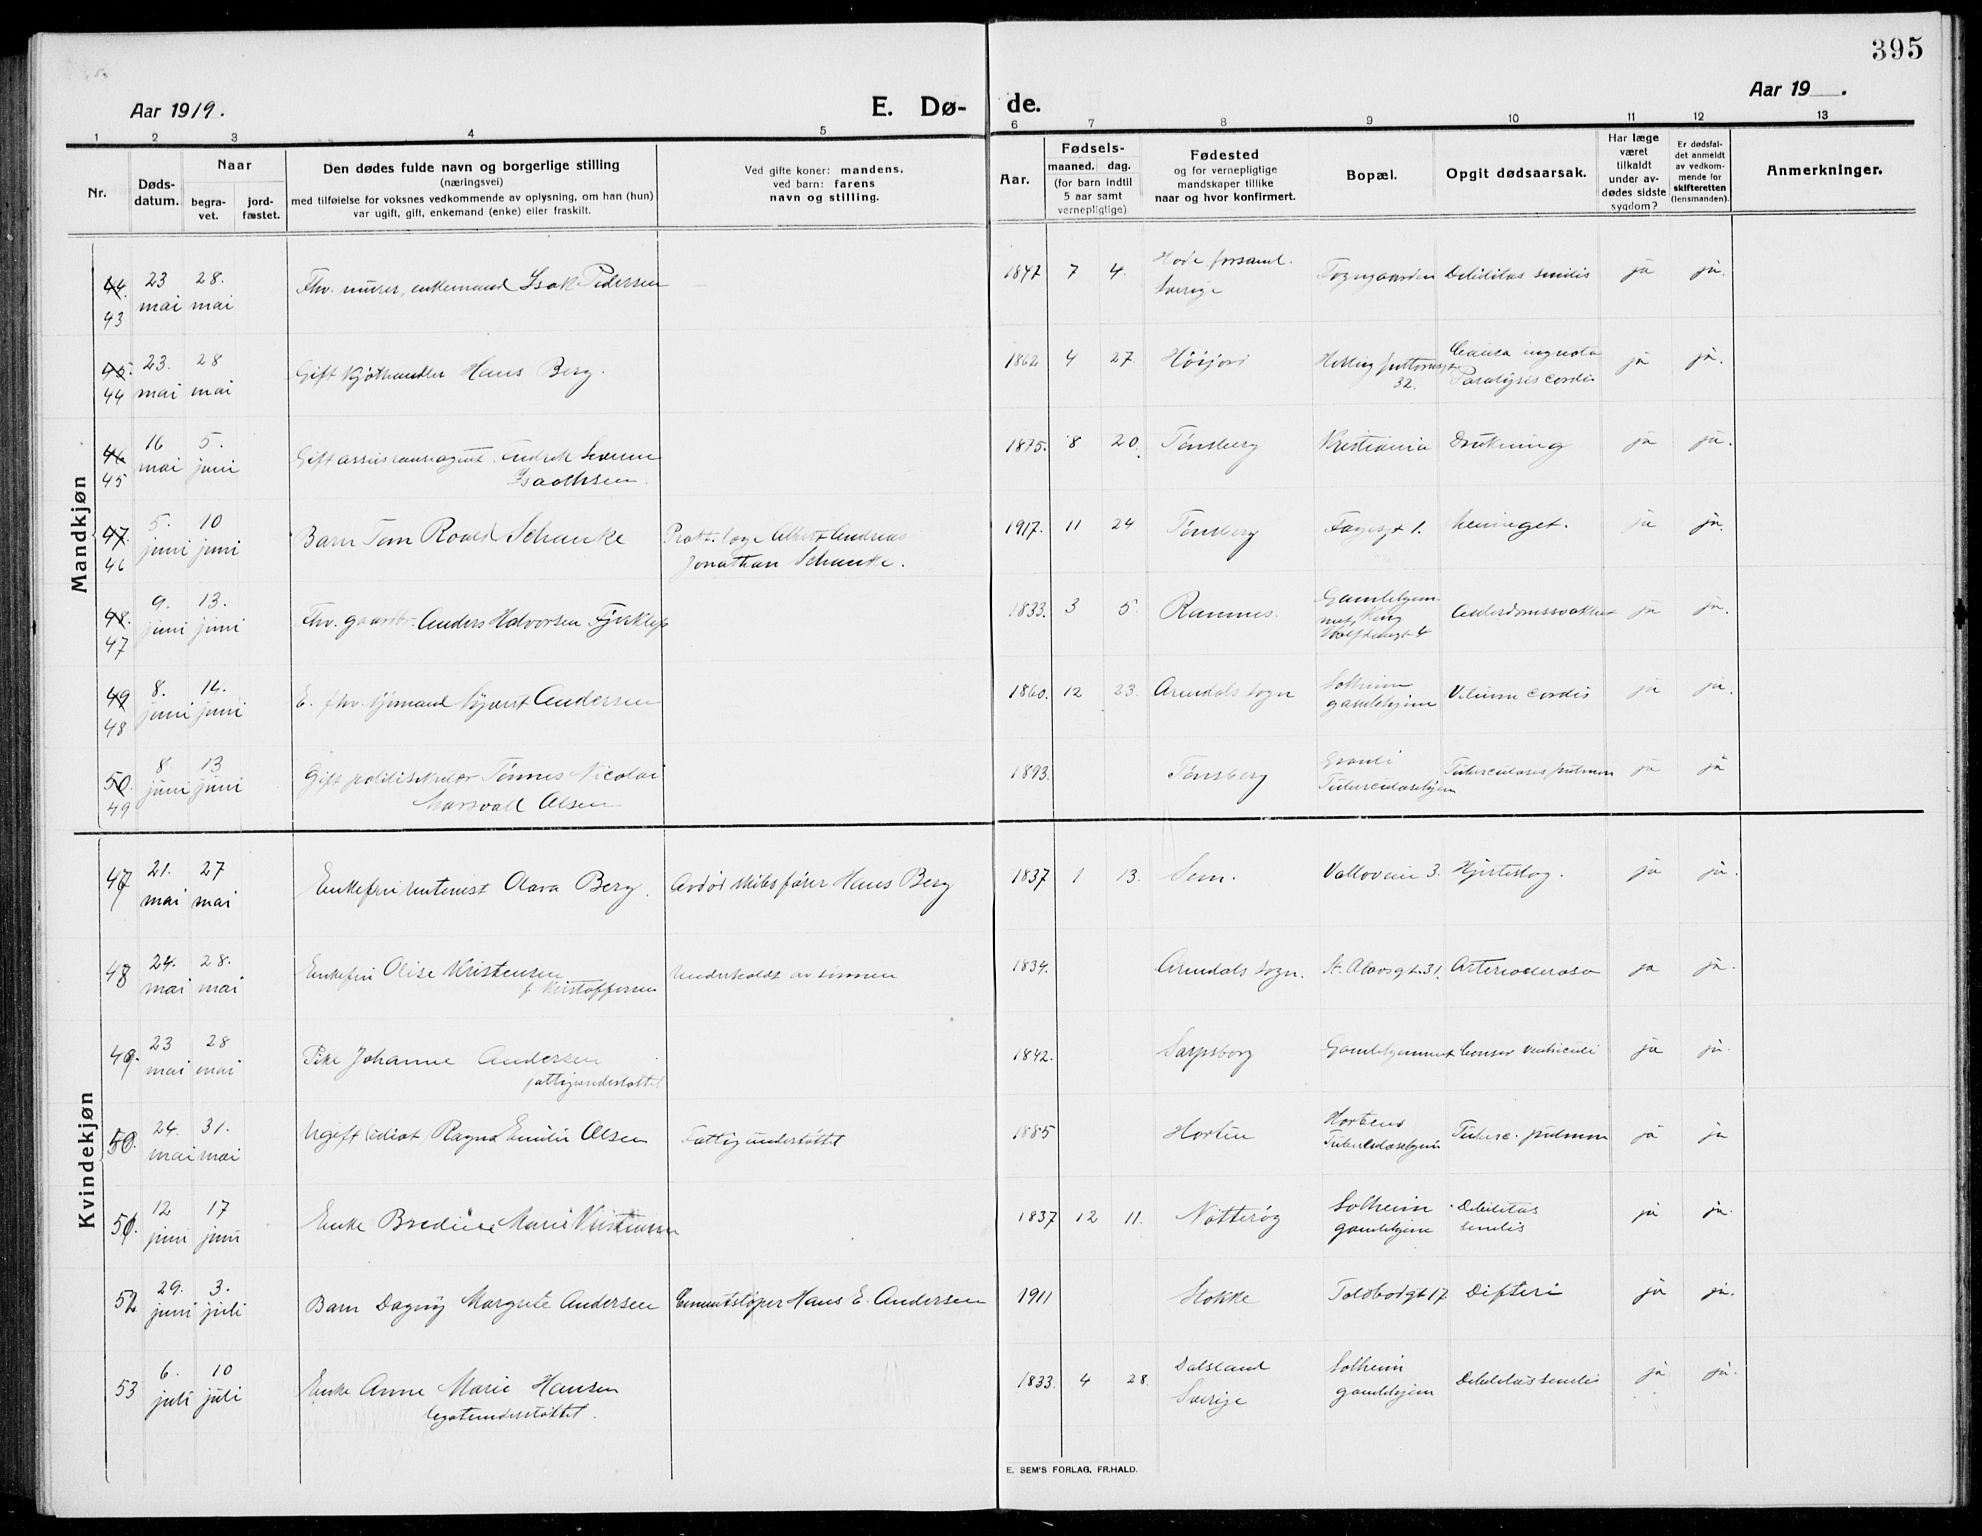 395
Aar 1919.
E. Dø-
de.
Aar 19 .
1 2 3 4 5 6 7 8 9 10 11 12 13
Nr.
Døds-
datum.
Naar
begra-
vet.
jord-
fæstet.
Den dødes fulde navn og borgerlige stilling
(næringsvei)
med tilføielse for voksnes vedkommende av oplysning, om han (hun)
var ugift, gift, enkemand (enke) eller fraskilt.
Ved gifte koner: mandens.
ved barn: farens
navn og stilling.
Aar.
Fødsels-
maaned. dag.
(for barn indtil
5 aar samt
vernepligtige)
Fødested
og for vernepligtige
mandskaper tillike
naar og hvor konfirmert.
Bopæl.
Opgit dødsaarsak.
Har læge
været
tilkaldt
under av-
dødes sidste
sygdom?
Er dødsfal-
det anmeldt
av vedkom-
mende for
skifteretten
(lensmanden).
Anmerkninger.
Mandkjøn
44. 43 23 mai 28. mai Fhv. murer, enkemand Isak Pedersen 1847 7 4. forsaml. Sverige Debilitas senilis ja ja.
45. 44 23. mai 28 mai Gift kjøthandler Hans Berg. 1862 4 27. Høijord 32. Causa ignota Paralysis cordis ja ja.
46 45 16 mai 5. juni Gift assuranseagent Isachsen. 1875. 8 20. Tønsberg Kristiania Drukning ja ja.
47. 46 5. juni 10 juni Barn Tom Roald Schanke Prakt. læge Albert Andreas Jonathan Schanke. 1917. 11 24 Tønsberg 1. meningit. ja ja.
48. 47 9. juni 13. juni Fhv. gaardbr. Anders Halvorsen 1833. 3 5. Ramnes. Alderdomssvakhet ja ja.
49 48 8. juni 14. juni E. fhv. sjømand Andersen 1860. 12 23. Arendals sogn Solheim gamlehjem Vitium cordis ja ja.
50. 49 8. juni 13 juni Gift Tønnes Nicolai Olsen 1893. Tønsberg Tuberculosehjem Tuberculosis pulmon ja ja
Kvindekjøn
47 21. mai 27 mai Enkefru rentenist Olava Berg. Avdød skibsfører Hans Berg 1837 1 13. Sem. Valløveien 3. Hjerteslag. ja ja.
48 24. mai 28. mai Enkefru Olise Kristensen f. Kristoffersen Underholdt av sønnen 1834. Arendals sogn. St. Olavsgt. 31. ja ja.
49. 23 mai 28 mai Pike Johanne Andersen fattigunderstøttet 1842. Sarpsborg Gamlehjemmet Cancer ventriculi ja ja.
50. 24. mai 31. mai Ugift (idiot) Ragna Emilie Olsen Fattigunderstøttet 1885 Horten Hortens Tuberculosehjem Tuberc. pulmon ja ja
51. 12 juni 17 juni Enke Bredine Marie Kristiansen 1837 12 11. Nøtterøy Solheim gamlehjem Debilitas senilis ja ja.
52 29. juni 3. juli Barn Dagny Margrete Andersen Cementstøper Hans E. Andersen 1911 Stokke Toldbodgt 17 Difteri ja ja.
53 6. juli 10 juli Enke Anne Marie Hansen legatunderstøttet. 1833. 4 28. Dalsland Sverige Solheim gamlehjem Debilitas senilis ja ja.
E. SEM'S FORLAG, FR.HALD.